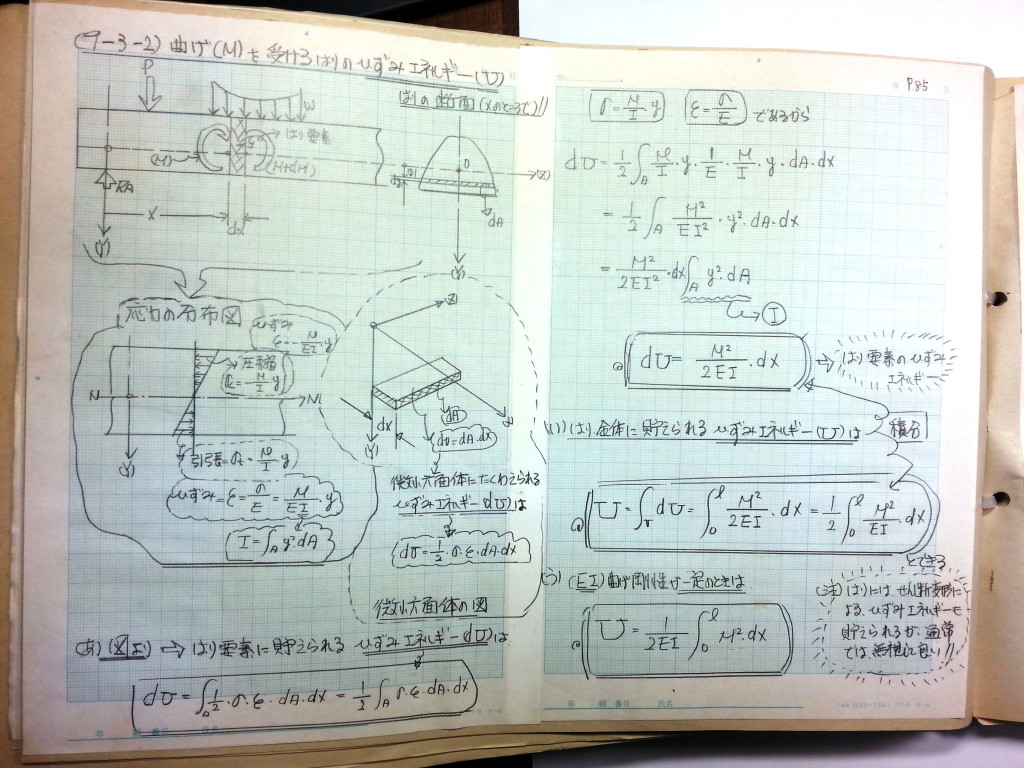 (9-3-2) 曲げ(M)を受けるはりのひずみエネルギー(U)
P
W
はり要素
(M)
(M+dM)
RA
X
dx
(Y)
はりの断面(Xのところで)
O
(Z)
dA
(Y)
応力の分布図
ひずみ
ε=-M/EI・y
圧縮
σc=-M/I・y
N
N
(Y)
引張=σt=M/I・y
ひずみ=ε=σ/E=M/EI・y
I=∫A y²dA
dx
dA
dv=dA・dx
(Y)
微刻六面体にたくわえられる
ひずみエネルギーdUは
dU=1/2・σ・ε・dA・dx
微刻六面体の図
(あ)(図より)⇨はり要素に貯えられるひずみエネルギーdUは
dU=∫A 1/2・σ・ε・dA・dx=1/2∫A σ・ε・dA・dx
P.85
σ=M/I・y ε=σ/E であるから
dU=1/2∫A M/I・y・1/E・M/I・y・dA・dx
=1/2∫A M²/EI²・y²・dA・dx
=M²/2EI²・dx∫A y²・dA
I
dU=M²/2EI・dx
はり要素のひずみ
エネルギー
(い)はり全体に貯えられるひずみエネルギー(U)は
積分
U=∫v dU=∫0^l M²/2EI・dx=1/2∫0^l M²/EI・dx
とできる
(う)(EI)曲げ剛性が一定のときは
U=1/2EI∫0^l M²・dx
(注)はりには、せん断変形に
よるひずみエネルギーも
貯えられるが、通常
では無視して良い!!
年 組 番号 氏名
年 組 番号 氏名